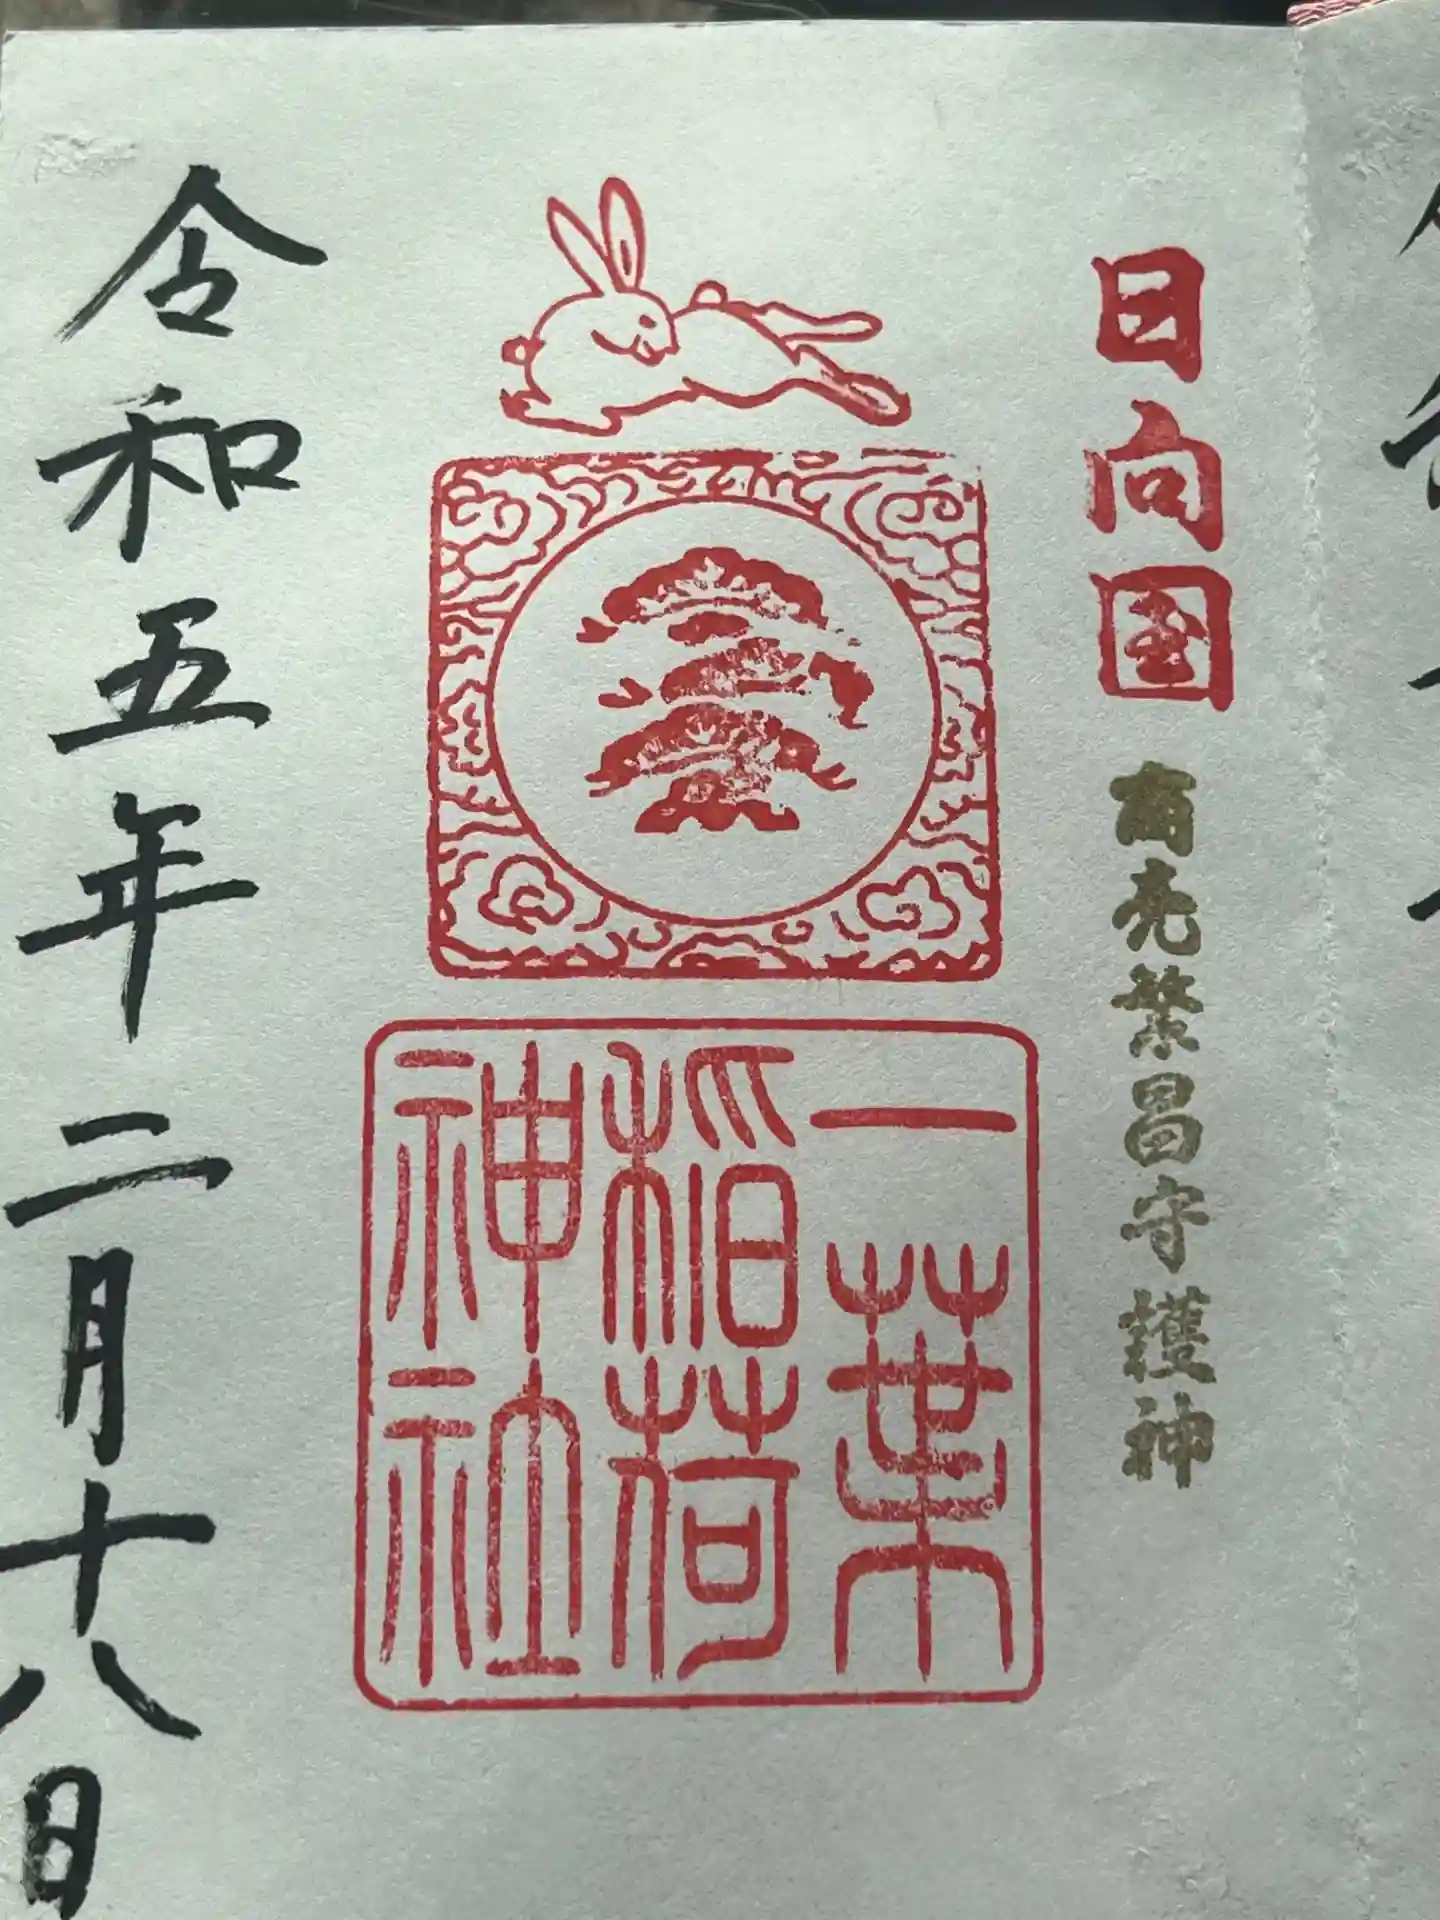 日向国
商売繁昌守護神
一葉稲荷神社
令和五年二月十八日